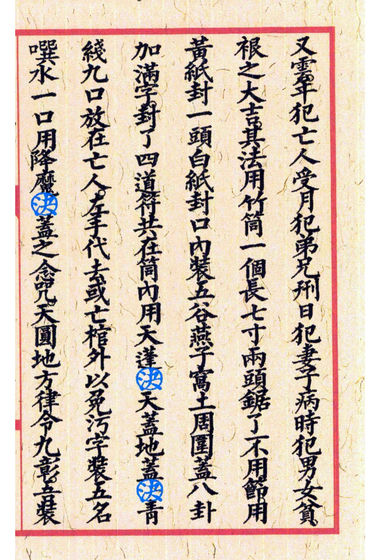 又雲年犯亡人受月犯弟兄刑日犯妻子病時犯男女貧
根之大吉其法用竹筒一個長七寸兩頭鋸了不用節用
黃紙封一頭白紙封口內裝五谷燕子窩土周圍蓋八卦
加滿字封了四道符共在筒內用天蓬決天蓋地蓋決青
綫九口放在亡人左手代去或亡棺外以免汚字裝五名
噀水一口用降魔決蓋之念咒天圓地方律令九彰吾裝